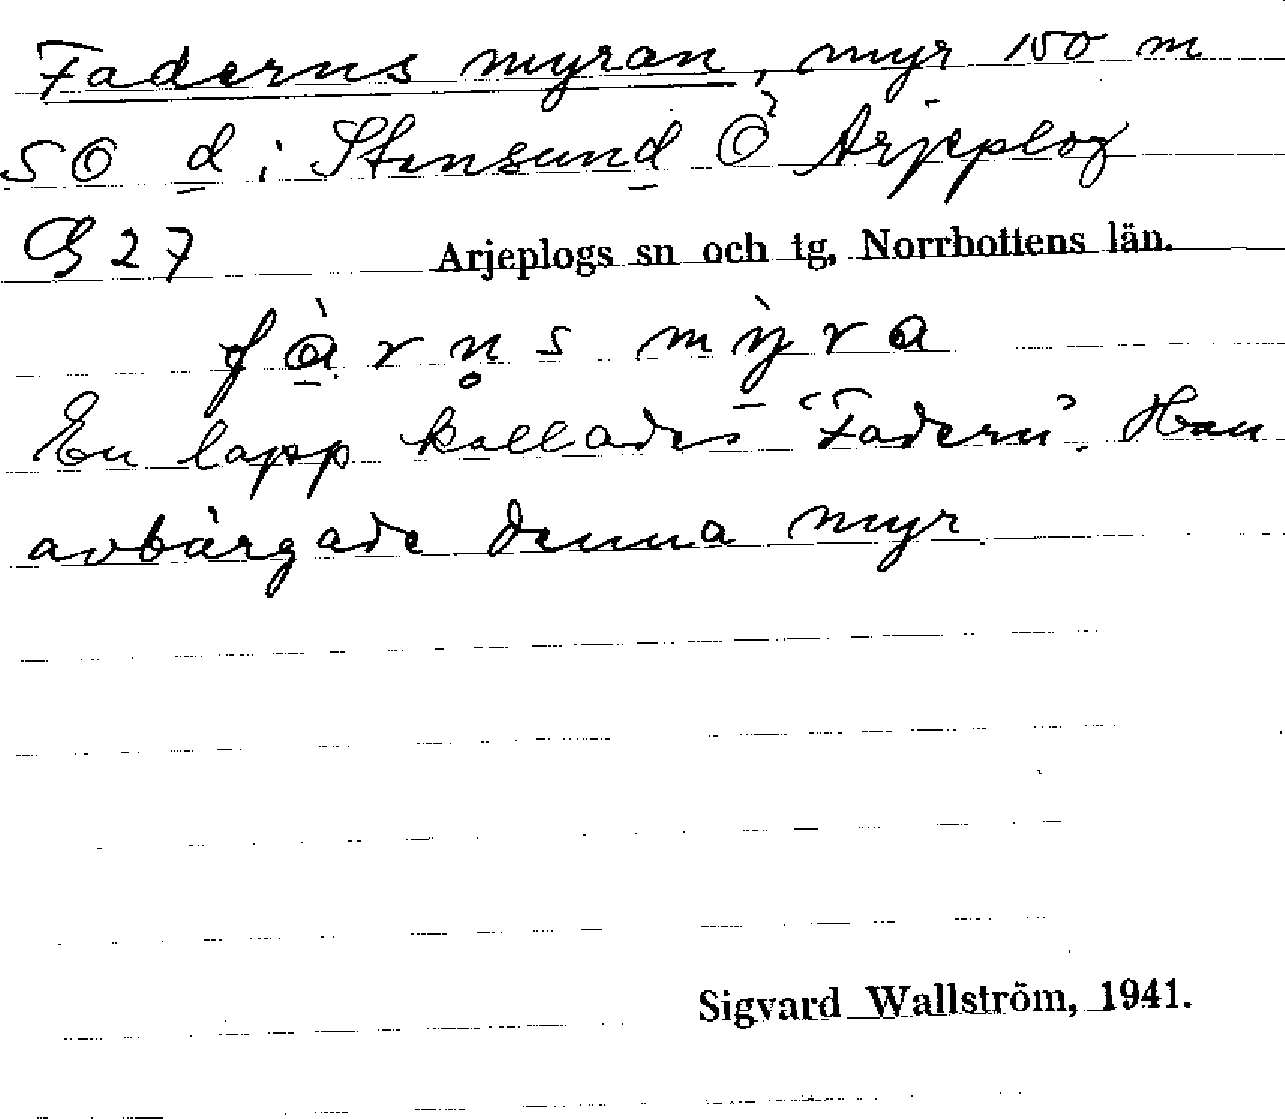 Faderns myran, myr 150 m
SO d i Stensund Ö Arjeplog
G 27 Arjeplogs sn och tg, Norrbottens län.
fà̱rn̥s mỳ̱ra
En lapp kallades "Fadern". Han
avbärgade denna myr
Sigvard Wallström, 1941.